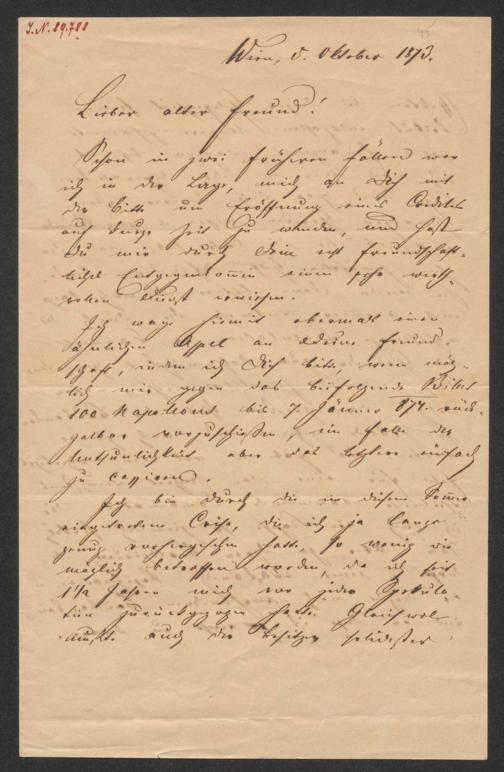 I.N. 89.788
Wien, d. Oktober 1873.
Lieber alter Freund!
Schon in zwei früheren Fällen war
ich in der Lage, mich an Dich mit
der Bitte um Eröffnung eines Credites
auf kurze Zeit zu wenden, und hast
Du mir durch Dein echt freundschaft-
liches Entgegenkommen einen sehr werth-
vollen Dienst erwiesen.
Ich wage hiemit abermals einen
ähnlichen Appel an Deine Freund-
schaft, indem ich Dich bitte, wenn mög-
lich mir gegen das beifolgende Billet
100 Napoleons bis 7. Jänner 874. rück-
zalbar vorzuschießen, im Falle der
Unthunlichkeit aber das letztere einfach
zu cassiren.
Ich bin durch die in diesem Sommer
eingetretene Crise, die ich ja lange
genug vorhergesehen hatte, so wenig wie
möglich betroffen worden, da ich seit
1½ Jahren mich vor jeder Spekula-
tion zurückgezogen hatte. Gleichwol
mußte auch der Besitzer solidester